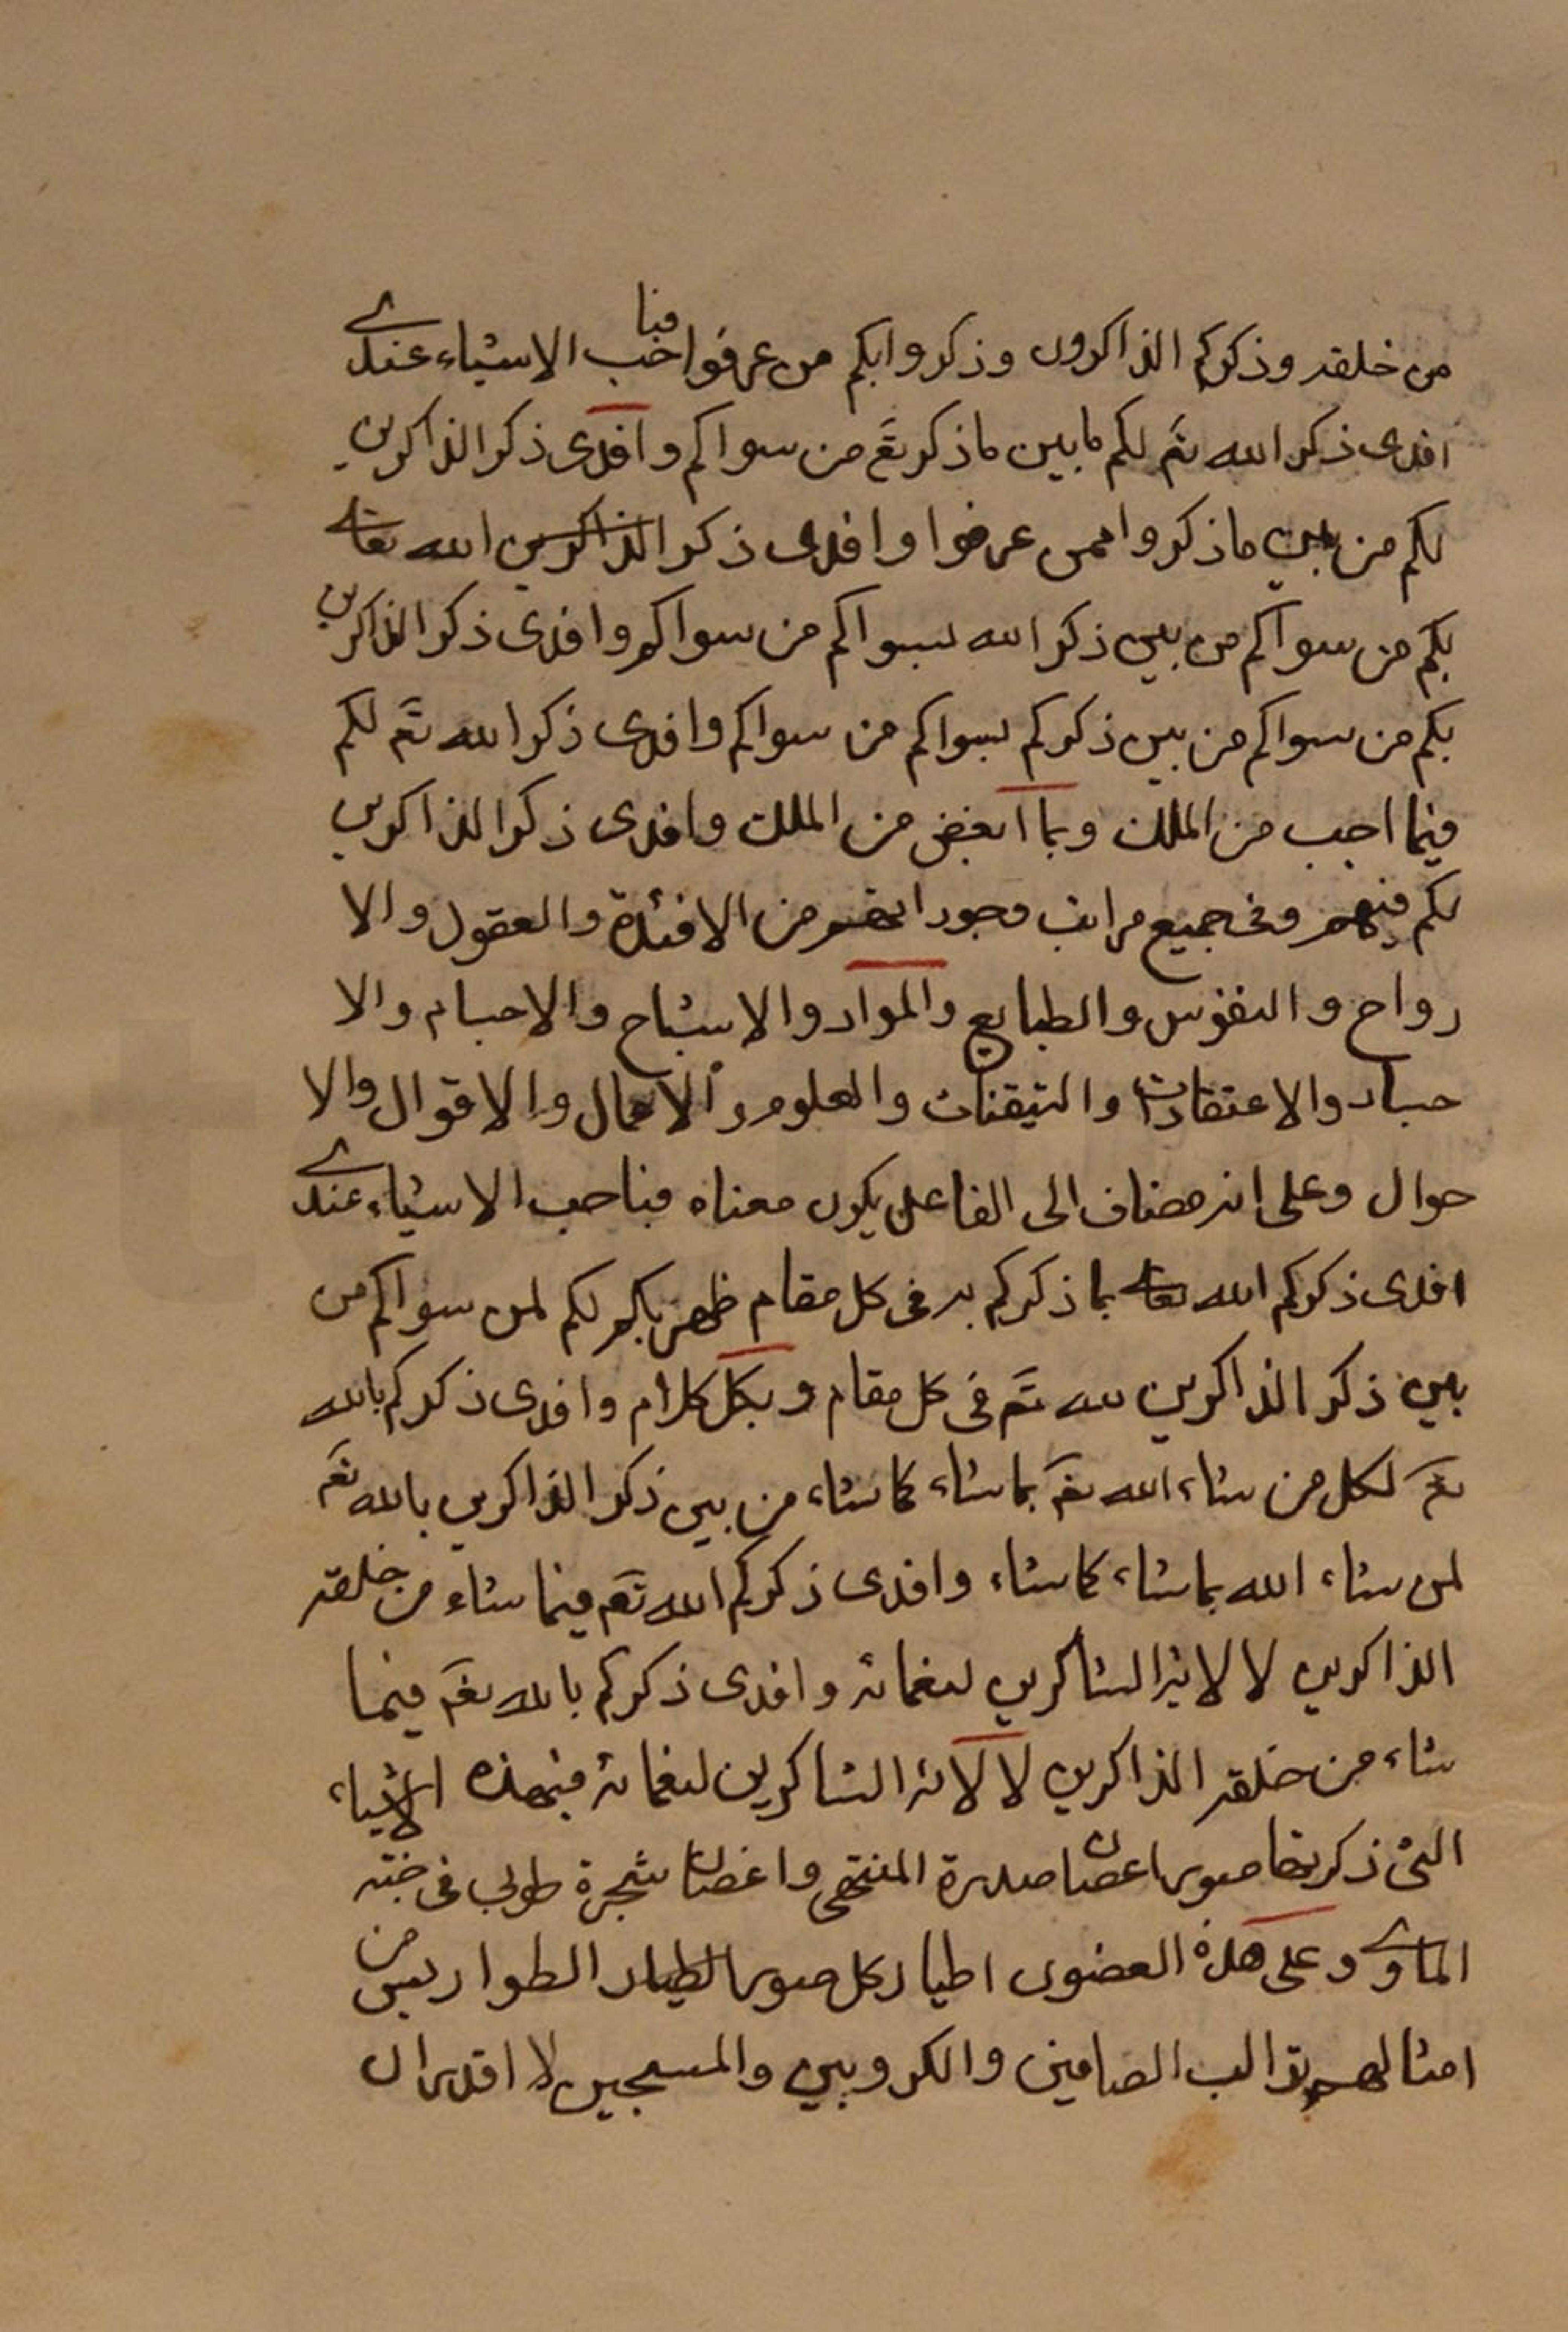 من خلقه وذكركم الذاكرون وذكروا بكم من عرفوا فبا حب الاشياء عندى
افدى ذكر الله تع لكم ما بين ما ذكر تع من سواكم وافدى ذكر الذاكرين
لكم من بين ما ذكروا ممن عرفوا وافدى ذكر الذاكرين الله تعالى
بكم من سواكم من بين ذكر الله لسواكم من سواكم وافدى ذكر الذاكرين
بكم من سواكم من بين ذكركم لسواكم من سواكم وافدى ذكر الله تع لكم
فيما احب من الملل وبما ابغض من الملل وافدى ذكر الذاكرين
لكم فيهم وفى جميع مراتب وجود انفسهم من الافئدة والعقول والا
رواح والنفوس والطبايع والمواد والاشباح والاجسام والا
جساد والاعتقادات والتيقنات والعلوم والاعمال والاقوال والا
حوال وعلى انه مضاف الى الفاعل يكون معناه فبا حب الاشياء عندى
افدى ذكركم الله تعالى بما ذكركم به فى كل مقام ظهر بكم لكم لمن سواكم من
بين ذكر الذاكرين لله تع فى كل مقام وبكل كلام وافدى ذكركم بالله
تع لكل من شاء الله تع بما شاء كما شاء من بين ذكر الذاكرين بالله تع
لمن شاء الله بما شاء كما شاء وافدى ذكركم الله تع فيما شاء من خلقه
الذاكرين لا لائه الشاكرين لنعمائه وافدى ذكركم بالله تع فيما
شاء من خلقه الذاكرين لا لائه الشاكرين لنعمائه فبهذه الاشياء
التى ذكرتها صور اغصان صدرة المنتهى واغصان شجرة طوبى فى جنة
الماوى وعلى هذه الغصون اطيار كل صور الطيار الطواويس من
امثالهم الصافين والكروبين والمسبحين لا اقدر ان